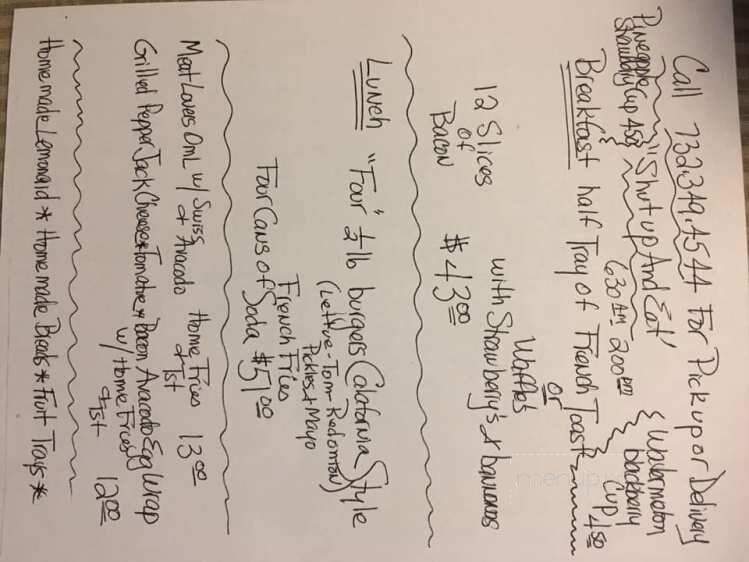 Call 732.349.4544 For Pick up or Delivery
Pineapple
Strawberry Cup 450
"Shut up And Eat'
630 Am 200 pm
Watermelon
blackberry
Cup 450
Breakfast half Tray of French Toast
or
Waffles
12 Slices with Strawberry's & bananas
of
Bacon $43.00
Lunch "Four" 1/2 lb burgers California Style
(Lettuce-Tom-Red onion)
Pickles & Mayo
French Fries
Four Cans of Soda $51.00
Meat Lovers Oml w/ Swiss Home Fries 13.00
& Avacado & Tst
Grilled Pepper Jack Cheese * Tomatoe * Bacon Avacado Egg Wrap
w/ Home Fries 12.00
& Tst
Homemade Lemonaid * Homemade Breads * Fruit Trays *